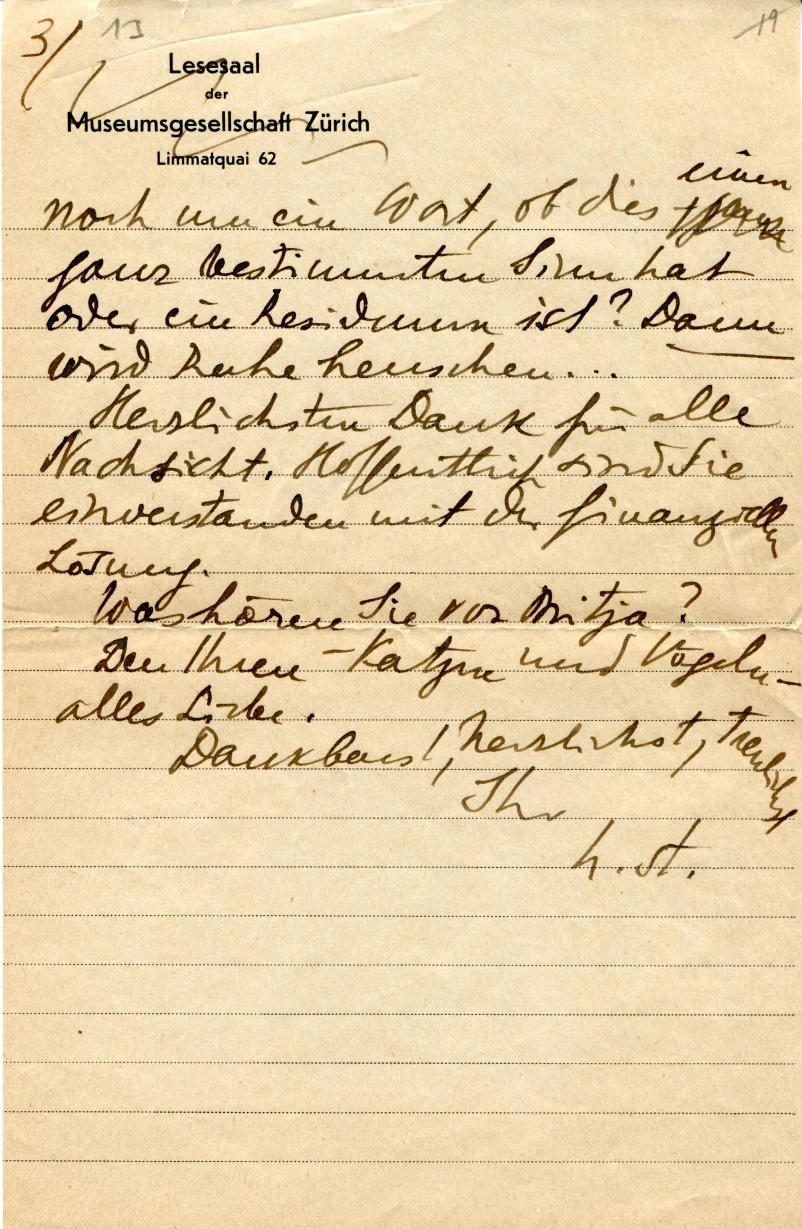 3/ 13 19
Lesesaal
der
Museumsgesellschaft Zürich
Limmatquai 62
einen
noch um ein Wort, ob dies
ganz bestimmten Sinn hat
oder ein Residuum ist? Dann
wird Ruhe herrschen...
Herzlichsten Dank für alle
Nachsicht. Hoffentlich sind Sie
einverstanden mit der finanziellen
Lösung.
Was hören Sie von Mitja?
Den Ihren - Katzen und Vögeln -
alles Liebe.
Dankbarst, herzlichst, treulichst
Ihr
h. st.